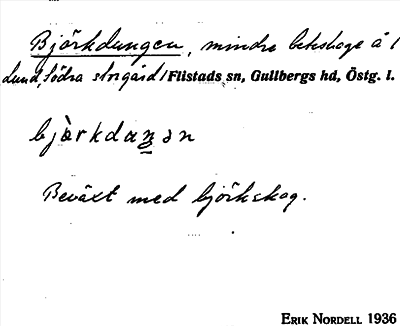 Björkdungen, mindre betshage å /
Lund, Södra storgård / Flistads sn, Gullbergs hd, Östg. l.
bjàrkdaŋən
Beväxt med björkskog.
ERIK NORDELL 1936